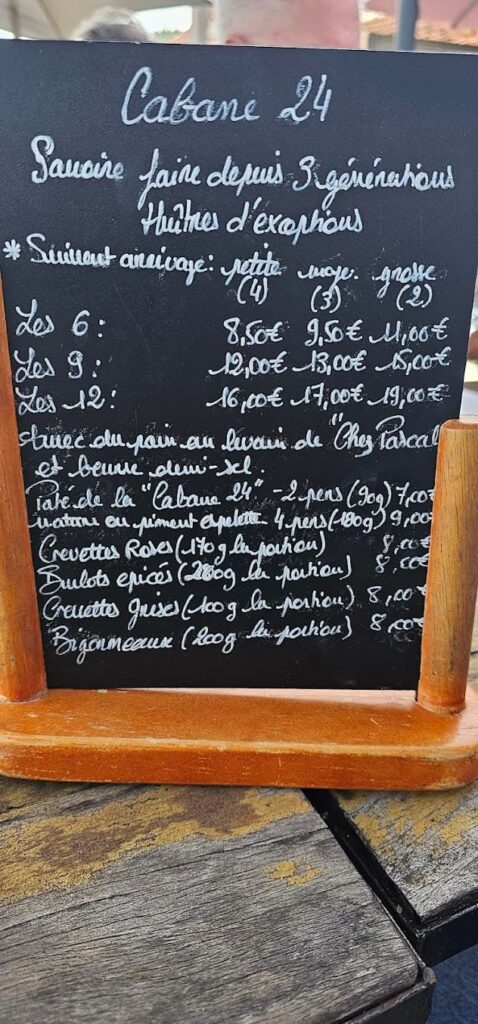 Cabane 24
Savoire faire depuis 3 générations
Huîtres d'exeptions
* Suivent arrivage: petite moye. grosse
(4) (3) (2)
Les 6: 8,50€ 9,50€ 11,00€
Les 9: 12,00€ 13,00€ 15,00€
Les 12: 16,00€ 17,00€ 19,00€
Avec du pain au levain de "Chez Pascal"
et beurre demi-sel.
Paté de la "Cabane 24" - 2 pers (90g) 7,00€
nature ou piment espelette 4 pers (180g) 9,00€
Crevettes Roses (170g la portion) 8,00€
Bulots epicés (200g la portion) 8,00€
Crevettes grises (100g la portion) 8,00€
Bigorneaux (200g la portion) 8,00€